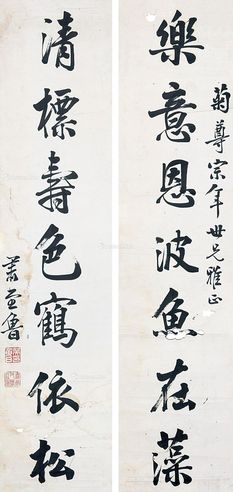 菊尊宗年世兄雅正
樂意恩波魚在藻
清標壽色鶴依松